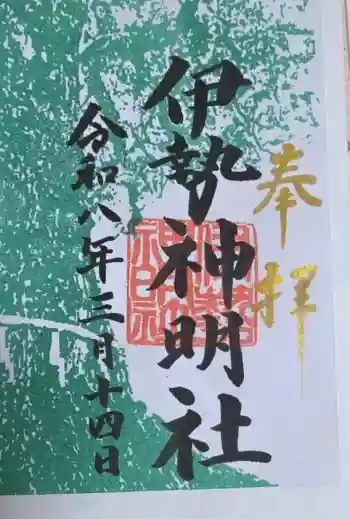 奉拝
伊勢神明社
令和八年三月十四日